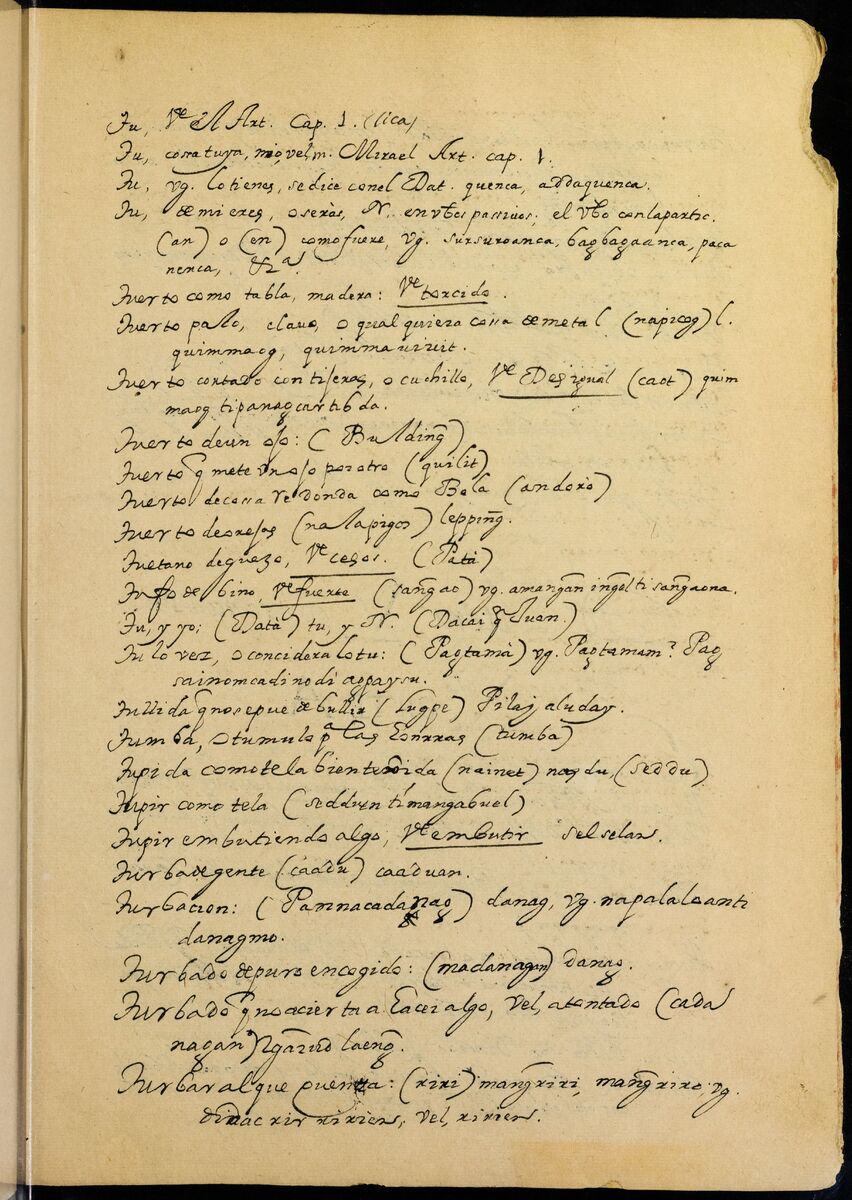 Tu, Vᵉ el Art. Cap. 1. (ica)
Tu, cossa tuya, mio, vel, m. Mirael Art. cap. 1.
Tu, vg. lo tienes, se dice con el Dat. quenca, addaquenca.
Tu, de mi eres, o seràs, N. en vbos passivos; el vbo con la partic.
(an) o (en) como fuere, vg. sursuroanca, bagbagaanca, paca
nenca, &ª.
Tuerto como tabla, madera: Vᵉ torcido.
Tuerto palo, clavo, o qual quiera cossa de metal (napicog) l.
quimmaog, quimmavivit.
Tuerto cortado con tiseras, o cuchillo, Vᵉ Desigual (caot) quim
maog ti panagcartibda.
Tuerto de un ojo: (Bulding̃)
Tuerto q̃ mete un ojo por otro (quilit)
Tuerto de cossa redonda como Bola (andoro)
Tuerto de orejas (na lapigos) lepping̃.
Tuetano de guezo, Vᵉ cesos. (Patà)
Tufo de bino, Vᵉ fuerte (sang̃ao) vg. amang̃an ing̃el ti sang̃aona.
Tu, y yo; (Datà) tu, y N. (Dacai q̃ Juan.)
Tu lo vez, o concidera lo tu: (Pagtamà) vg. Pagtamam? Pag
sainomcadinodi agpaysu.
Tullida q̃ no se puede bullir (Lugpe) Pilay aluday.
Tumba, o tumulo pª las honrras (tumba)
Tupida como tela bien texida (nainet) nasdu, (seddu)
Tupir como tela (seddum ti mangabuel)
Tupir embutiendo algo, Vᵉ embutir selselan.
Turba de gente (caadu) caaduan.
Turbacion: (Pannacadanag) danag, vg. napalalo anti
danagmo.
Turbado de puro encogido: (madanagan) danag.
Turbado q̃ no acierta a hacer algo, vel, atontado (cada
nagan) laeng̃.
Turbar al que cuenta: (riri) mang̃riri, mang̃riro; vg.
dinac rir ririen, vel, ririen.